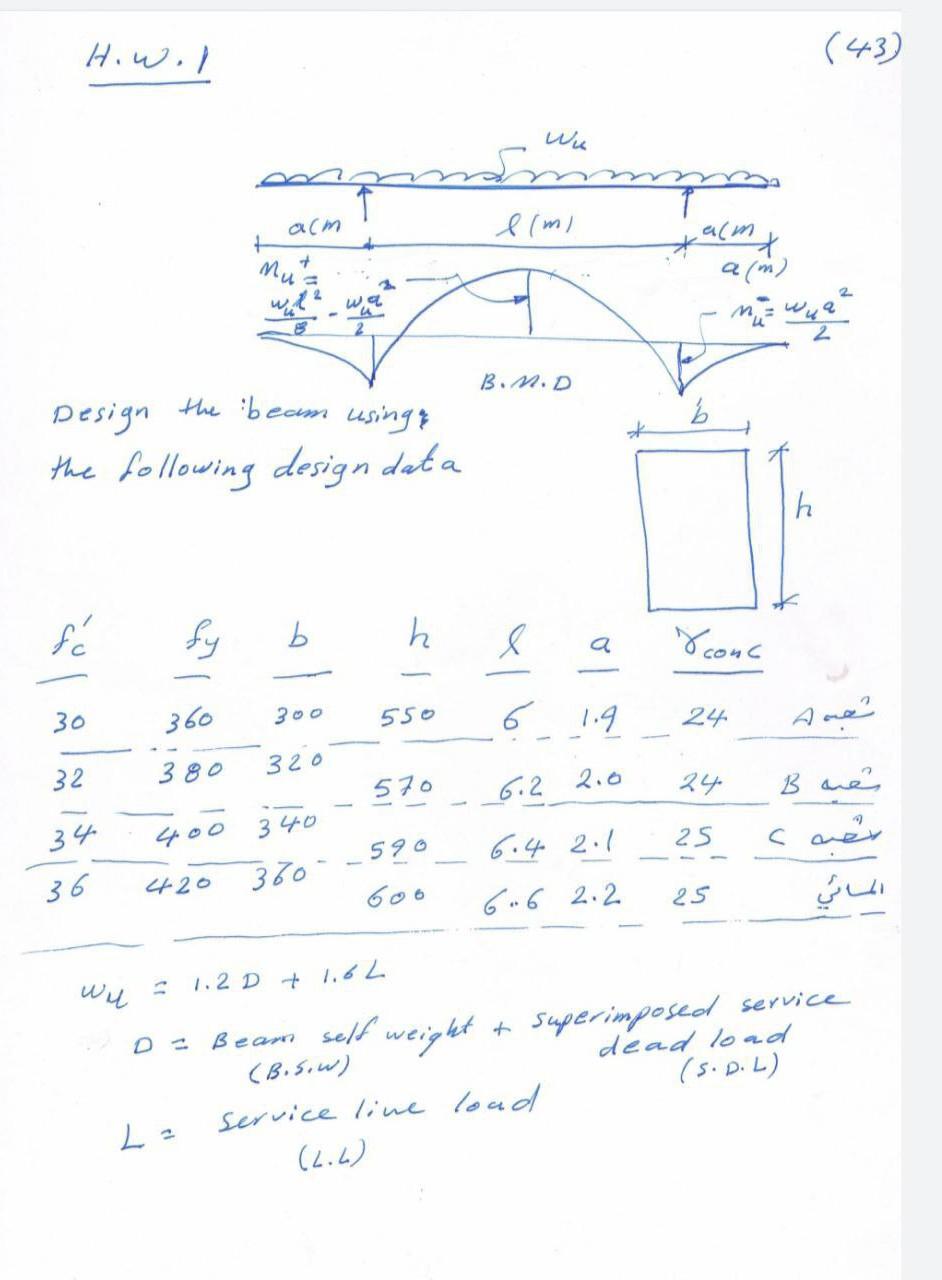 H.W.1
(43)
Wu
a(m
l (m)
a(m
a(m)
Mu+ =
wul²/8 - wua²/2
Mu- = wua²/2
B.M.D
Design the beam using
the following design data
b
h
fc' fy b h l a γconc
30 360 300 550 6 1.9 24 شعبة A
32 380 320 570 6.2 2.0 24 شعبة B
34 400 340 590 6.4 2.1 25 شعبة C
36 420 360 600 6.6 2.2 25 المسائي
wu = 1.2D + 1.6L
D = Beam self weight + superimposed service
dead load
(B.S.W)
(S.D.L)
L = service live load
(L.L)